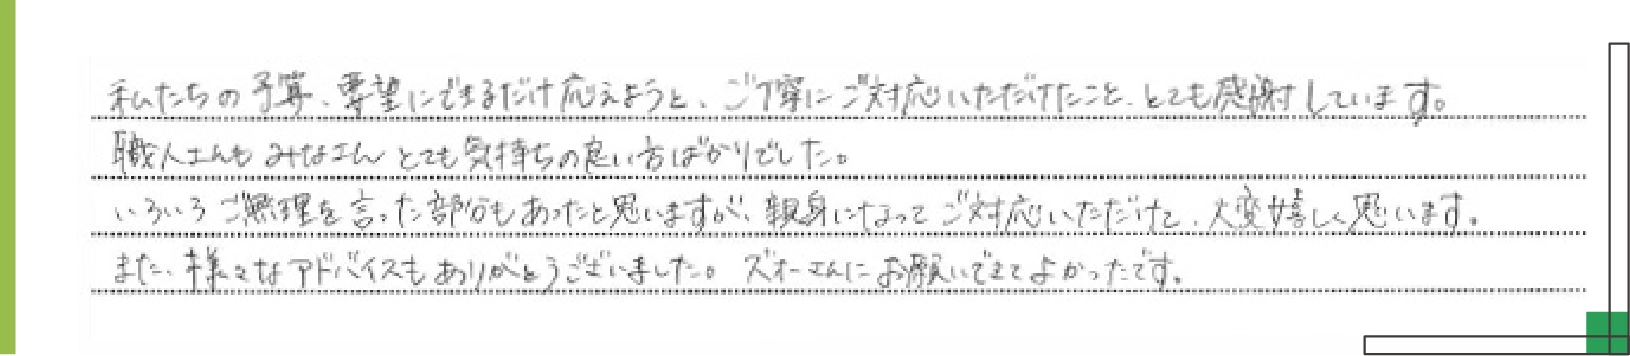 私たちの予算、要望にできるだけ応えようと、ご丁寧にご対応いただけたこと、とても感謝しています。
職人さんもみなさんとても気持ちの良い方ばかりでした。
いろいろご無理を言った部分もあったと思いますが、親身になってご対応いただけて、大変嬉しく思います。
また、様々なアドバイスもありがとうございました。ズオーさんにお願いできてよかったです。